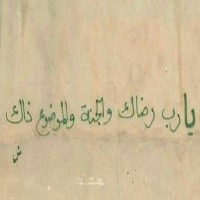 يارب رضاك والجنة والموضوع ذاك
ش